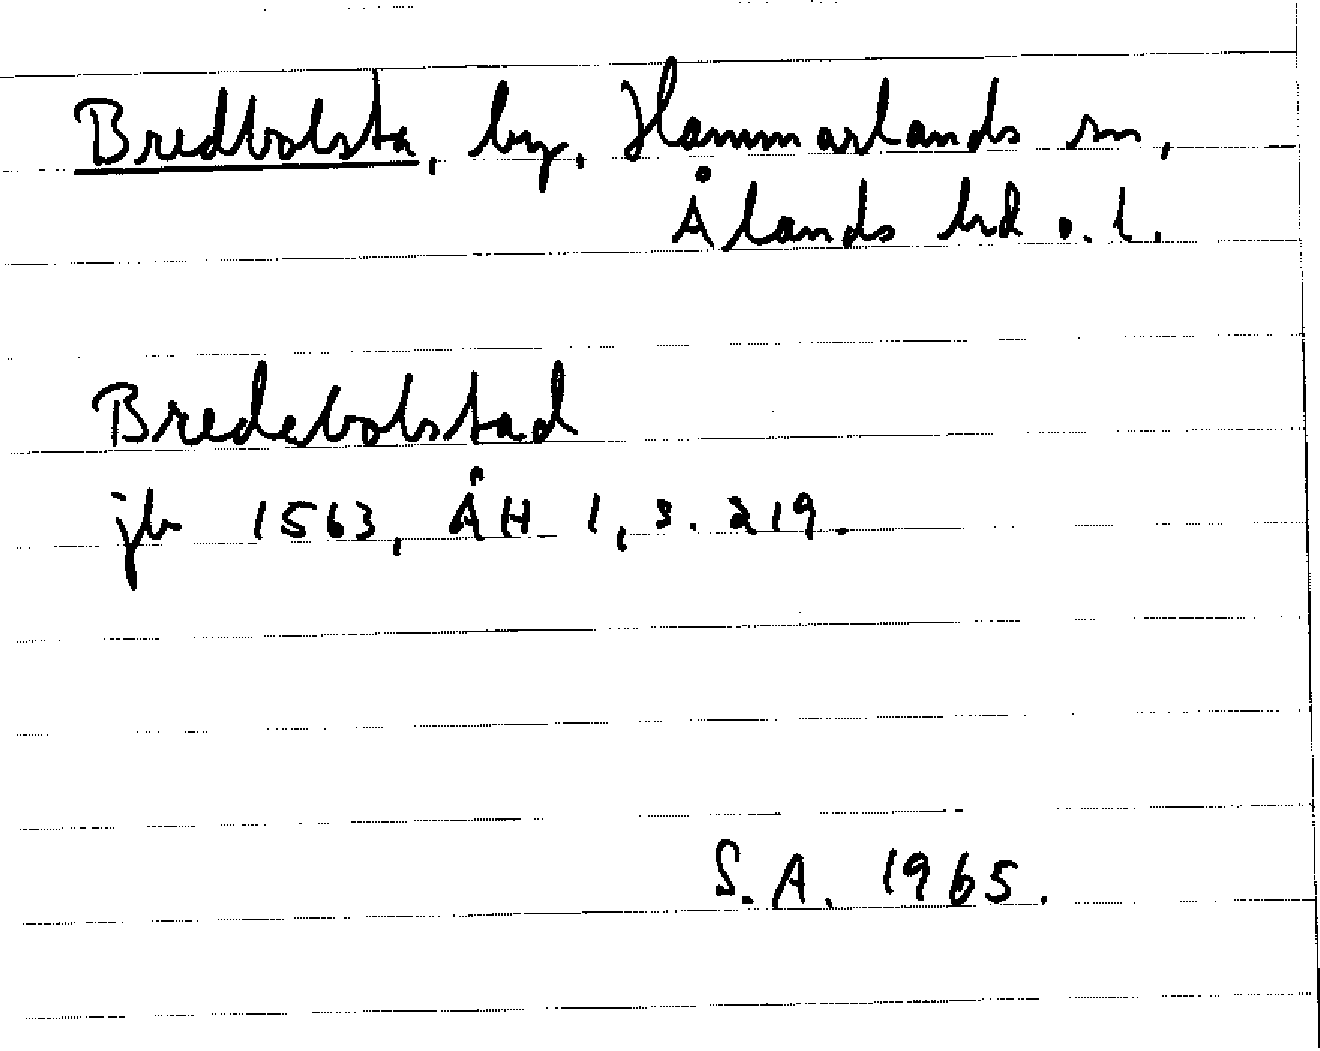 Bredbolsta, by, Hammarlands sn,
Ålands hd o. l.
Bredebolstad
jb 1563, ÅH 1, s. 219.
S.A. 1965.